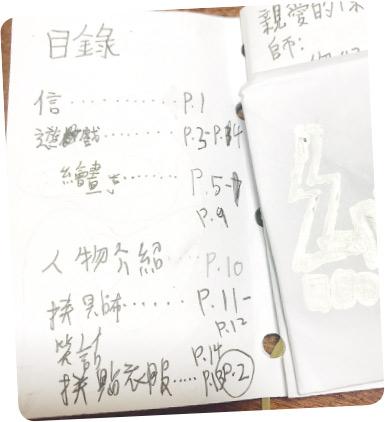 目錄
信............P.1
遊戲.........P.3-P.4
繪畫.........P.5-
P.9
人物介紹....P.10
P.11-
P.12
笑話 P.14
拼貼衣服..... P.2
親愛的
師: